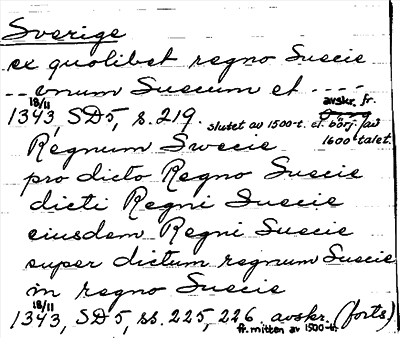 Sverige
ex quolibet regno Suecie
-- unum Suecum et ----
18/11 avskr. fr.
1343, SD5, s. 219. slutet av 1500-t. el. börj. av
Regnum Swecie 1600-talet.
pro dicto Regno Suecie
dicti Regni Suecie
eiusdem Regni Suecie
super dictum regnum Suecie
in regno Suecie
18/11
1343, SD5, ss. 225, 226. avskr. (forts)
fr. mitten av 1500-t.